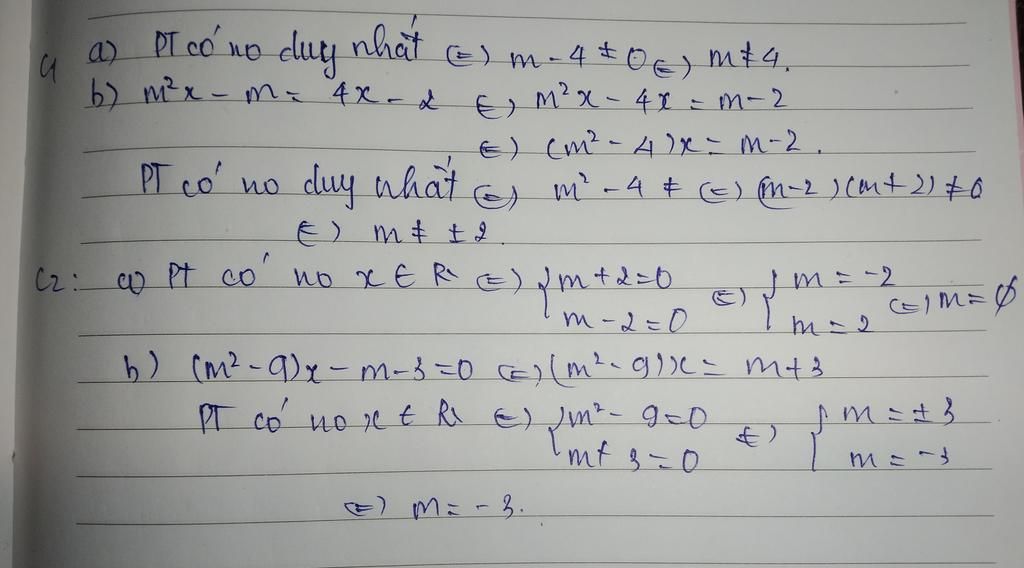 C1 a) PT có no duy nhất ⇔ m - 4 ≠ 0 ⇔ m ≠ 4.
b) m²x - m = 4x - 2 ⇔ m²x - 4x = m - 2
⇔ (m² - 4)x = m - 2.
PT có no duy nhất ⇔ m² - 4 ≠ ⇔ (m-2)(m+2) ≠ 0
⇔ m ≠ ±2.
C2: a) Pt có no x ∈ R ⇔ { m + 2 = 0 ; m - 2 = 0 ⇔ { m = -2 ; m = 2 ⇔ m = ∅
b) (m² - 9)x - m - 3 = 0 ⇔ (m² - 9)x = m + 3
PT có no x ∈ R ⇔ { m² - 9 = 0 ; m + 3 = 0 ⇔ { m = ±3 ; m = -3
⇔ m = -3.